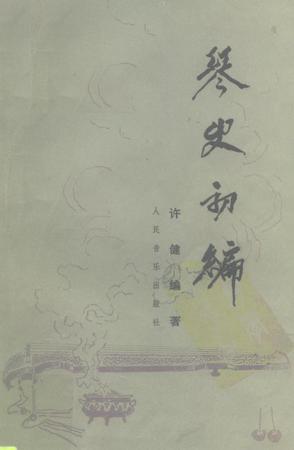 琴史初编
许健编著
人民音乐出版社